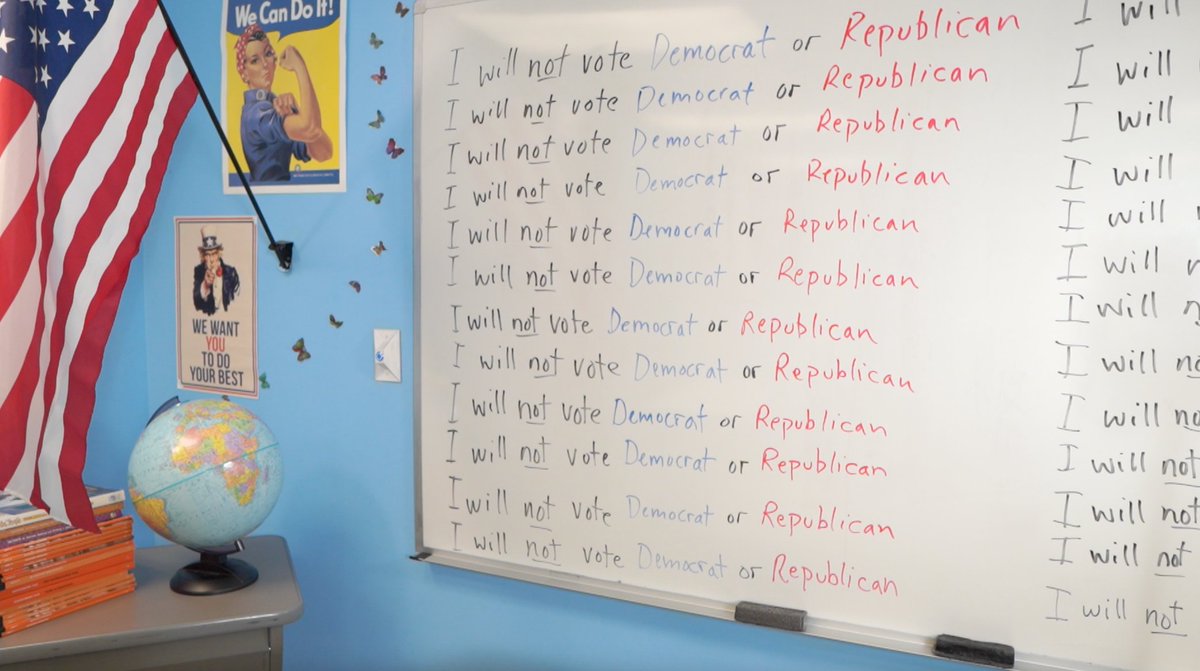 We Can Do It!
WE WANT
YOU
TO DO
YOUR BEST
I will not vote Democrat or Republican
I will not vote Democrat or Republican
I will not vote Democrat or Republican
I will not vote Democrat or Republican
I will not vote Democrat or Republican
I will not vote Democrat or Republican
I will not vote Democrat or Republican
I will not vote Democrat or Republican
I will not vote Democrat or Republican
I will not vote Democrat or Republican
I will not vote Democrat or Republican
I will not vote Democrat or Republican
I will
I will
I will
I will
I will
I will
I will
I will
I will
I will not
I will not
I will not
I will not